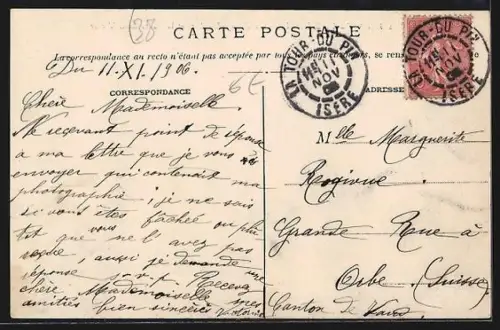 33
CARTE POSTALE
La correspondance au recto n'étant pas acceptée par tous les pays
Du 11.XI.1906
6E
LA TOUR-DU-PIN
11
NOV
ISÈRE
LA TOUR-DU-PIN
11
NOV
ISÈRE
CORRESPONDANCE
ADRESSE
Chère Mademoiselle.
Ne recevant point de réponse
a ma lettre que je vous
envoyer qui contenait ma
photographie; je ne sais
si vous êtes fâchée ou plu
tôt que ne l'avez pas
reçue, aussi je demande une
réponse s.v.p. Recevez
chère Mademoiselle mes
amitiés bien sincères
Mlle Marguerite
Rogivue
Grande Rue à
Orbe (Suisse)
Canton de Vaud